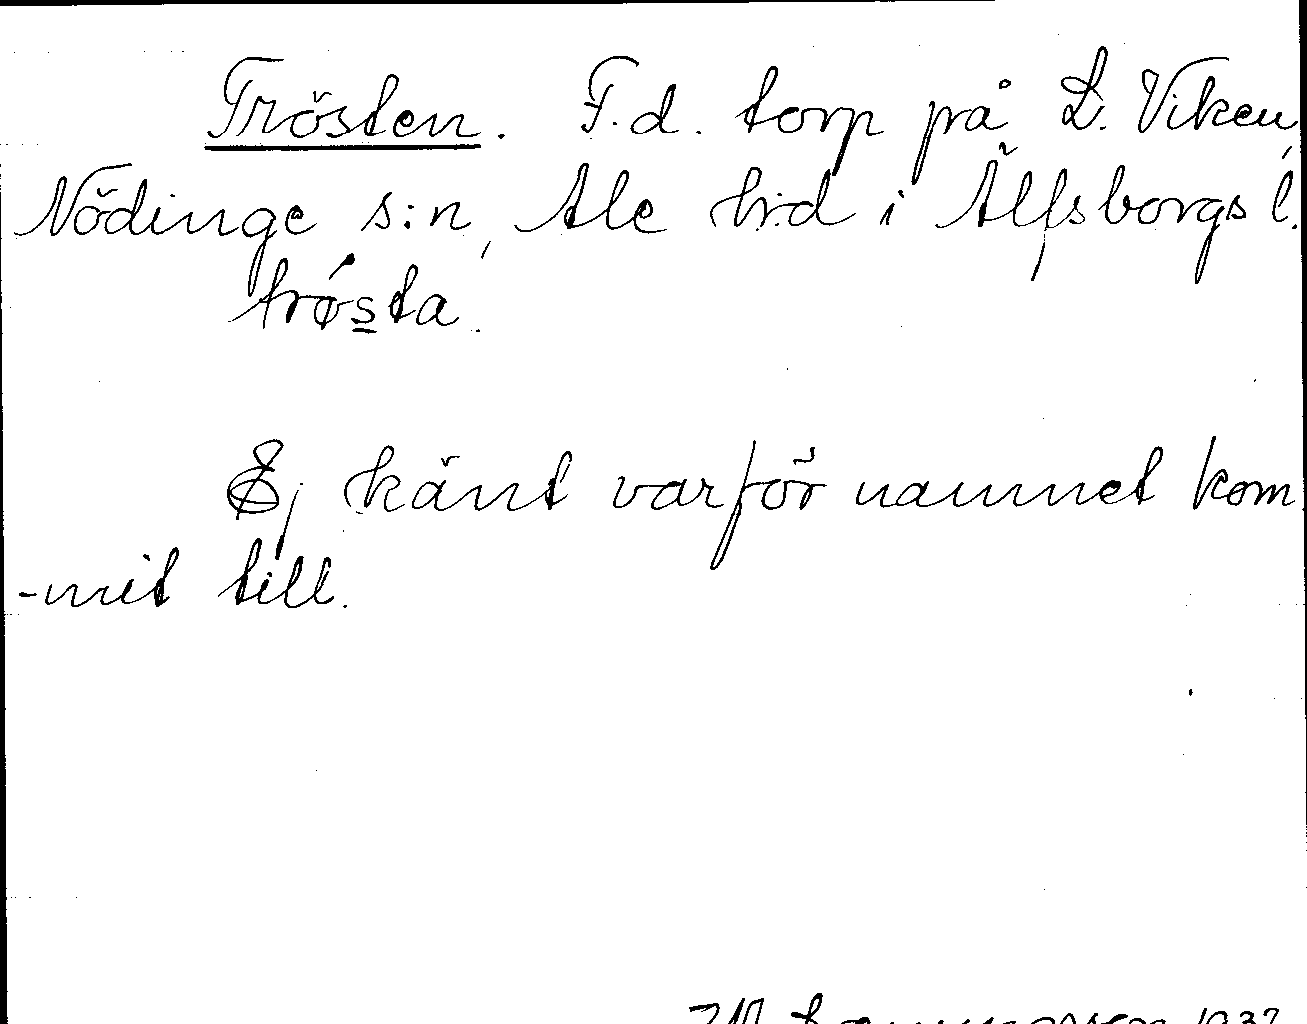 Trösten. F.d. torp på L. Viken,
Nödinge s:n, Ale h:d i Älfsborgs l.
trø´sta.
Ej känt varför namnet kom
-mit till.
1932